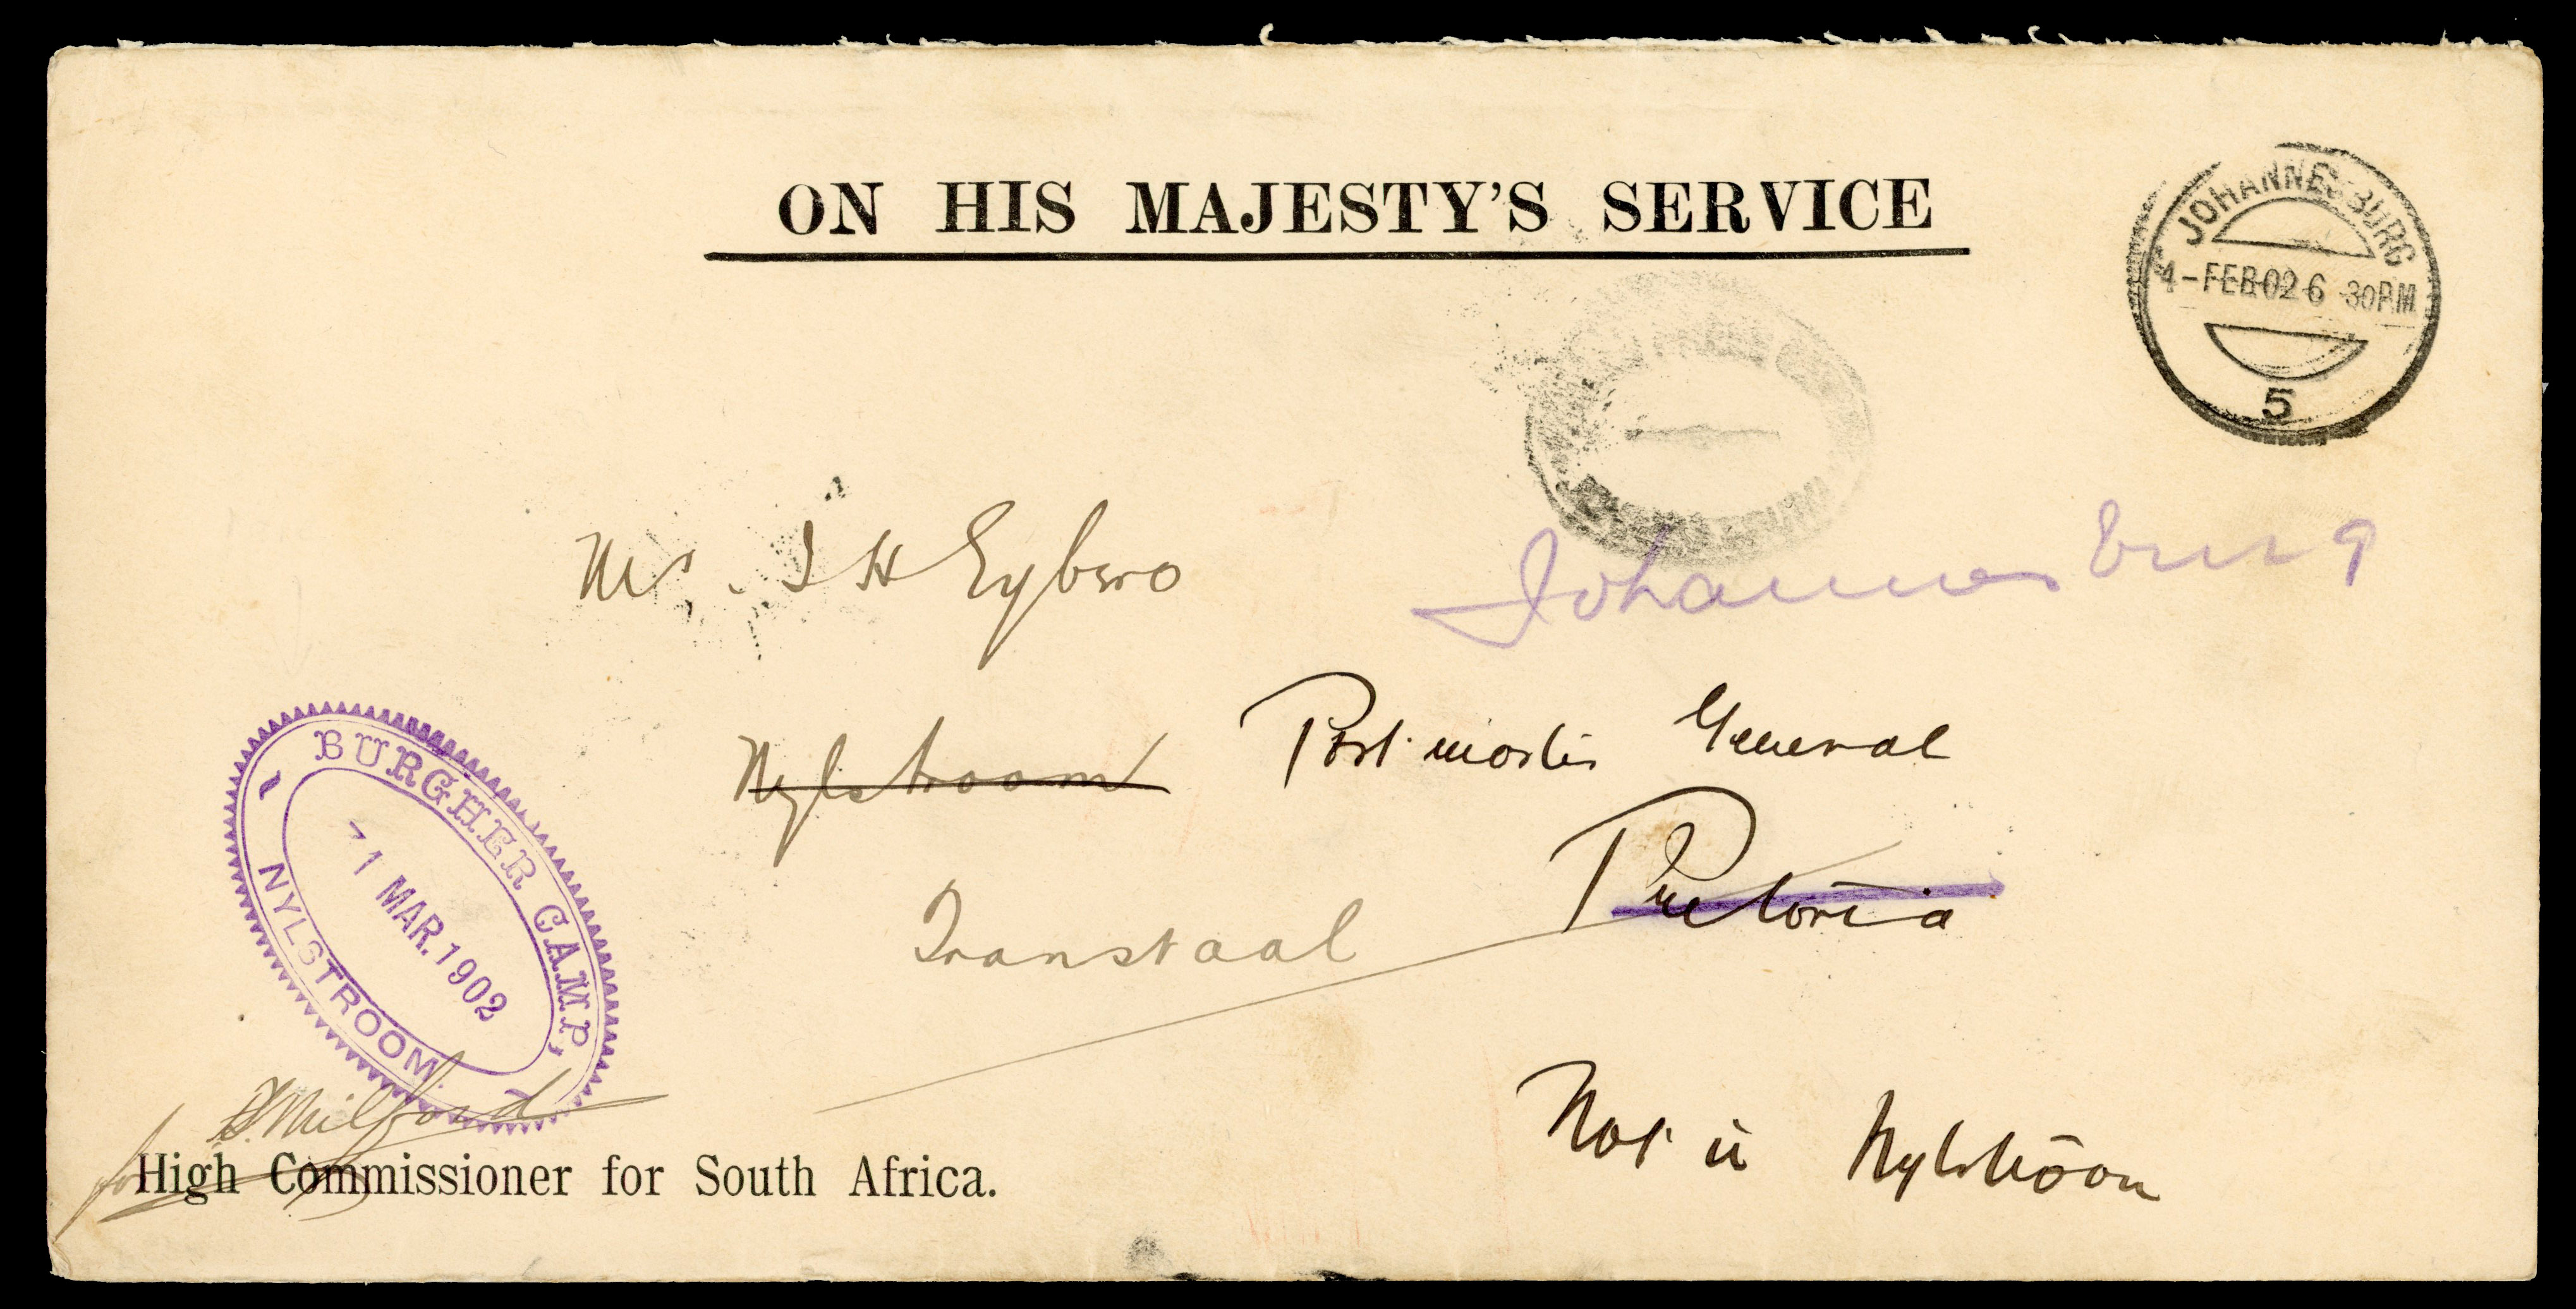 ON HIS MAJESTY'S SERVICE
JOHANNESBURG
4-FEB 02 6 30PM
5
Mr. J H
Johannesburg
Nylstroom
Postmaster General
Transvaal
Pretoria
BURGHER CAMP,
1 MAR. 1902
NYLSTROOM.
Milford
for High Commissioner for South Africa.
Not in Nylstroom